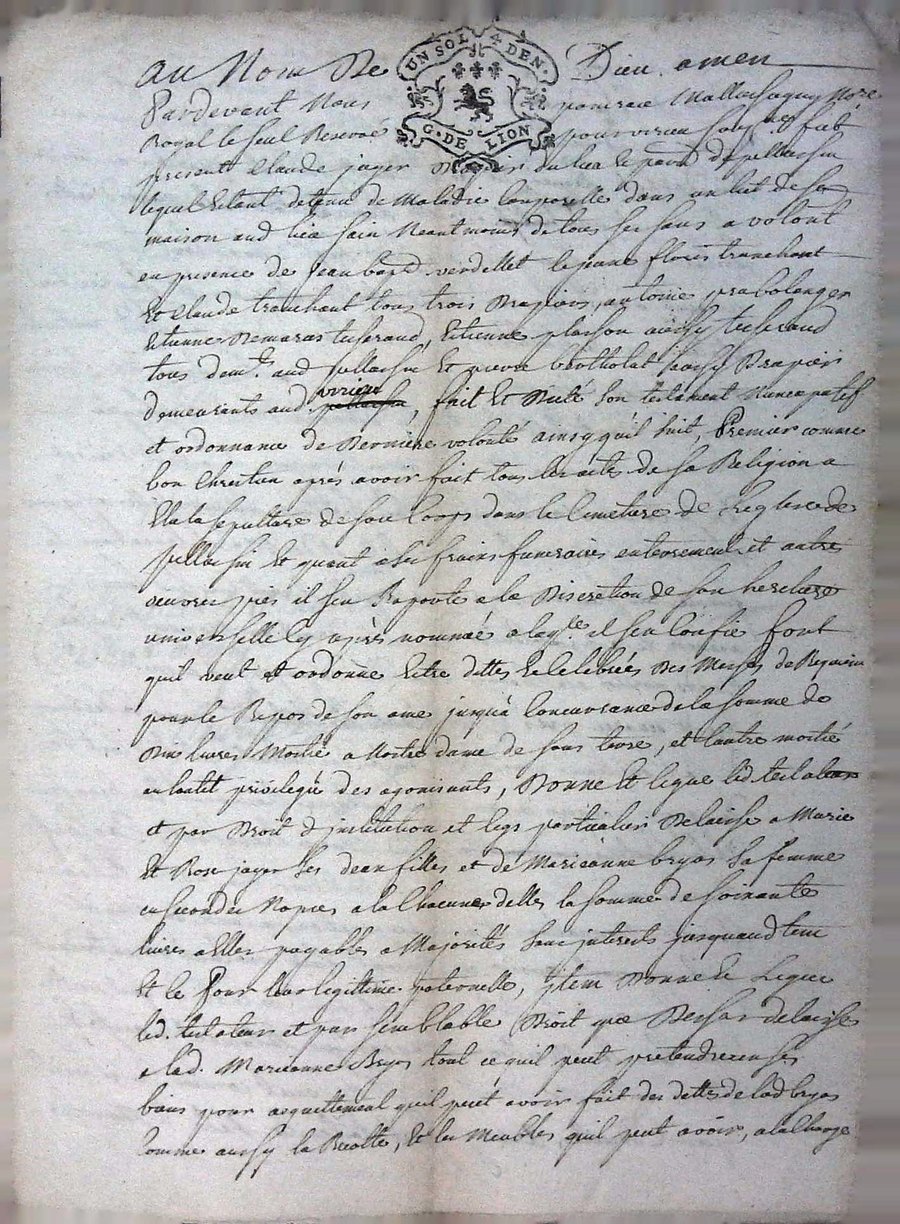 au Nom De Dieu amen
UN SOL 4 DEN.
G. DE LION
Pardevant Nous Nore
Royal le seul Reservé pour virieu soussignes fut
present Claude jayer du lieu de pellassin
lequel Etant detenu de Maladie Corporelle dans un lit de sa
maison aud lieu sain Neantmoins de tous ses sens a volont
en presence de jean bapt verdellet lejeune floris tranchant
Et Claude tranchant tous trois Drapiers, antoine boulanger
Etienne tisserand, Etienne plasson aussy tisserand
tous demt. aud pellassin Et pierre berthollat Drapier
demeurants aud. virieu, fait Et Dicté son testament Nuncupatif
et ordonnance de Derniere volonté ainsy qu'il suit, Premier comme
bon Chretien après avoir fait tous les actes de sa Religion a
Elu la sepulture de son Corps dans le Cimetiere de l'eglise de
pellassin Et quant a ses fraix funeraires enterrement et autres
œuvres pies il s'en Raporte a la Discretion de son heritiere
universelle cy après nommée a laqle. il s'en Confie font
quil veut et ordonne Etre dittes Et Celebrées Des Messes de Requiem
pour le Repos de son ame jusqu'à Concurrance de la somme de
Dix livres Moitié a Nostre dame de sous terre, et l'autre moitié
a l'autel privilegié des agonisants, Donne Et legue led. testateur
et par Droit d'institution et legs particulier Delaisse a Marie
Et Rose jayer ses deux filles et de Marieanne bryas sa femme
en secondes Nopces a la Chacune d'elles la somme de soixante
livres a Elles payables a Majorités sans interests jusquaud tem
Et le pour leur legittime paternelle, jtem Donne Et Legue
led. testateur et par semblable Droit que Dessus delaisse
a lad. Marieanne Bryas tout ce quil peut pretendre en ses
biens pour acquittement qu'il peut avoir fait des dettes de lad bryas
Comme aussy la Recolte, Et les Meubles qu'il peut avoir, a la Charge